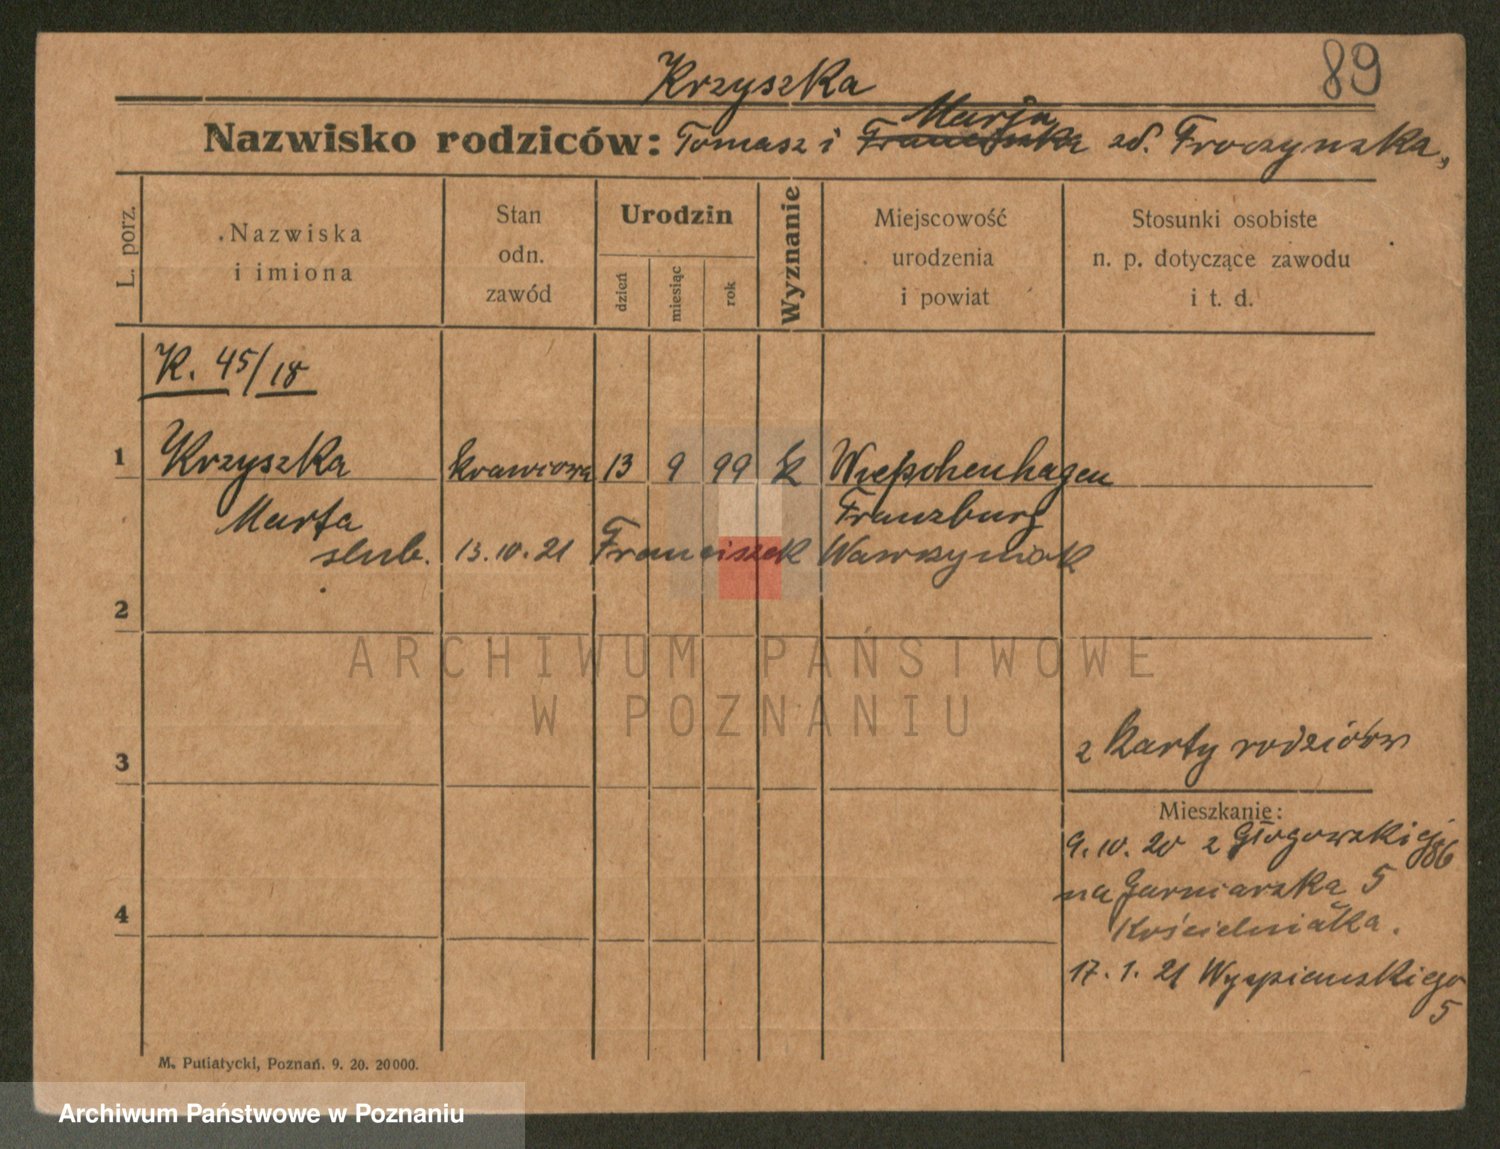 Krzyszka
89
Nazwisko rodziców: Tomasz i Franciszka Marja zd. Troczynska,
L. porz.
Nazwiska i imiona
Stan odn. zawód
Urodzin
dzień
miesiąc
rok
Wyznanie
Miejscowość urodzenia i powiat
Stosunki osobiste n. p. dotyczące zawodu i t. d.
K. 45/18
1 Krzyszka krawcowa 13 9 99 k
Marta Franzburg
slub. 13.10.21 Franciszek Wawrzyniak
2
3
z karty rodziców
Mieszkanie:
9.10.20 z Głogowskiej 86
na Garncarska 5
17.1.21 Wyspianskiego
5
4
M. Putiatycki, Poznań. 9. 20. 20000.
ARCHIWUM PAŃSTWOWE
W POZNANIU
Archiwum Państwowe w Poznaniu